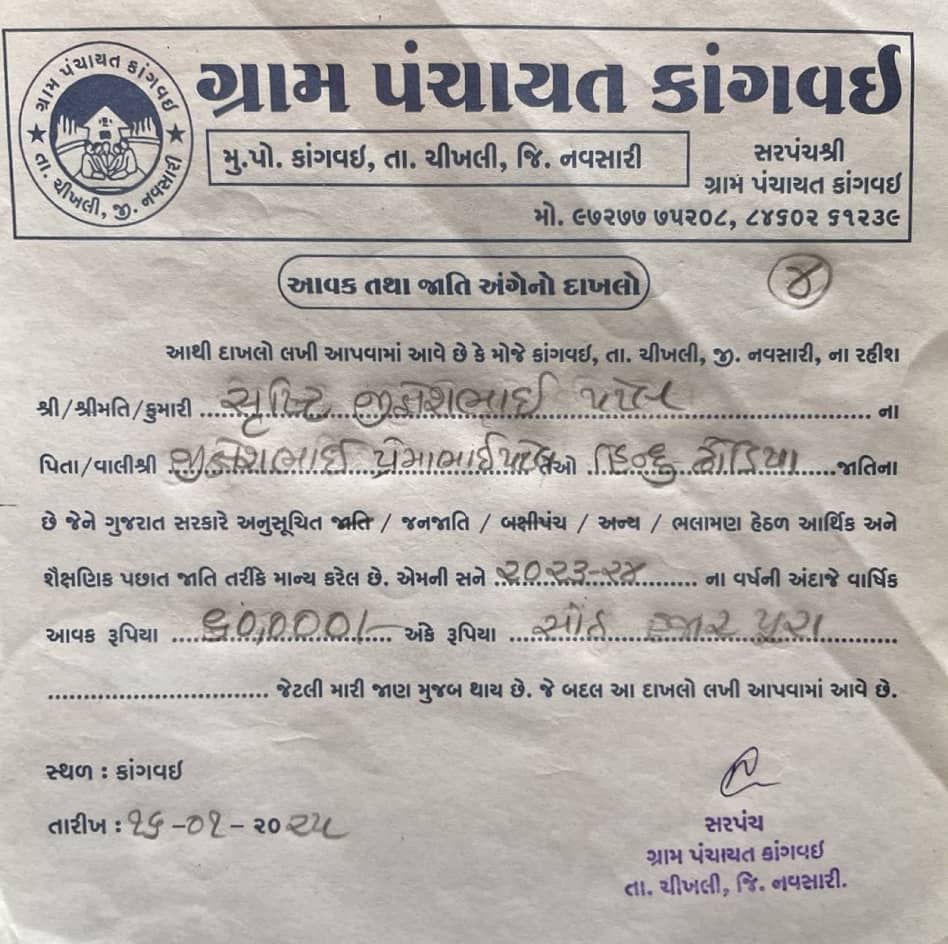 ગ્રામ પંચાયત કાંગવઇ
તા. ચીખલી, જી. નવસારી
ગ્રામ પંચાયત કાંગવઇ
મુ.પો. કાંગવઇ, તા. ચીખલી, જિ. નવસારી
સરપંચશ્રી
ગ્રામ પંચાયત કાંગવઇ
મો. ૯૭૨૭૭ ૭૫૨૦૮, ૮૪૬૦૨ ૬૧૨૩૯
આવક તથા જાતિ અંગેનો દાખલો
૪
આથી દાખલો લખી આપવામાં આવે છે કે મોજે કાંગવઇ, તા. ચીખલી, જી. નવસારી, ના રહીશ
શ્રી/શ્રીમતિ/કુમારી સૃષ્ટિ જીજ્ઞેશભાઈ પટેલ ના
પિતા/વાલીશ્રી જીજ્ઞેશભાઈ પ્રેમાભાઈ પટેલ તેઓ હિન્દુ ધોડિયા જાતિના
છે જેને ગુજરાત સરકારે અનુસૂચિત જાતિ / જનજાતિ / બક્ષીપંચ / અન્ય / ભલામણ હેઠળ આર્થિક અને
શૈક્ષણિક પછાત જાતિ તરીકે માન્ય કરેલ છે. એમની સને ૨૦૨૩-૨૪ ના વર્ષની અંદાજે વાર્ષિક
આવક રૂપિયા ૬૦,૦૦૦/- અંકે રૂપિયા સાંઠ હજાર પુરા
જેટલી મારી જાણ મુજબ થાય છે. જે બદલ આ દાખલો લખી આપવામાં આવે છે.
સ્થળ : કાંગવઇ
તારીખ : ૧૬-૦૧-૨૦૨૫
સરપંચ
ગ્રામ પંચાયત કાંગવઇ
તા. ચીખલી, જિ. નવસારી.